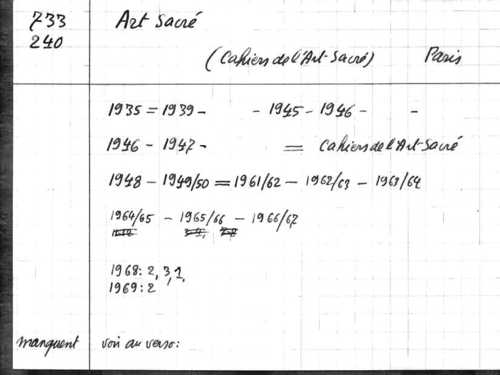 733 Art Sacré
240
(Cahiers de l'Art Sacré) Paris
1935 = 1939 - - 1945 - 1946 - -
1946 - 1947 - = Cahiers de l'Art Sacré
1948 - 1949/50 = 1961/62 - 1962/63 - 1963/64
1964/65 - 1965/66 - 1966/67
1968: 2, 3, 1,
1969: 2
manquent voir au verso: